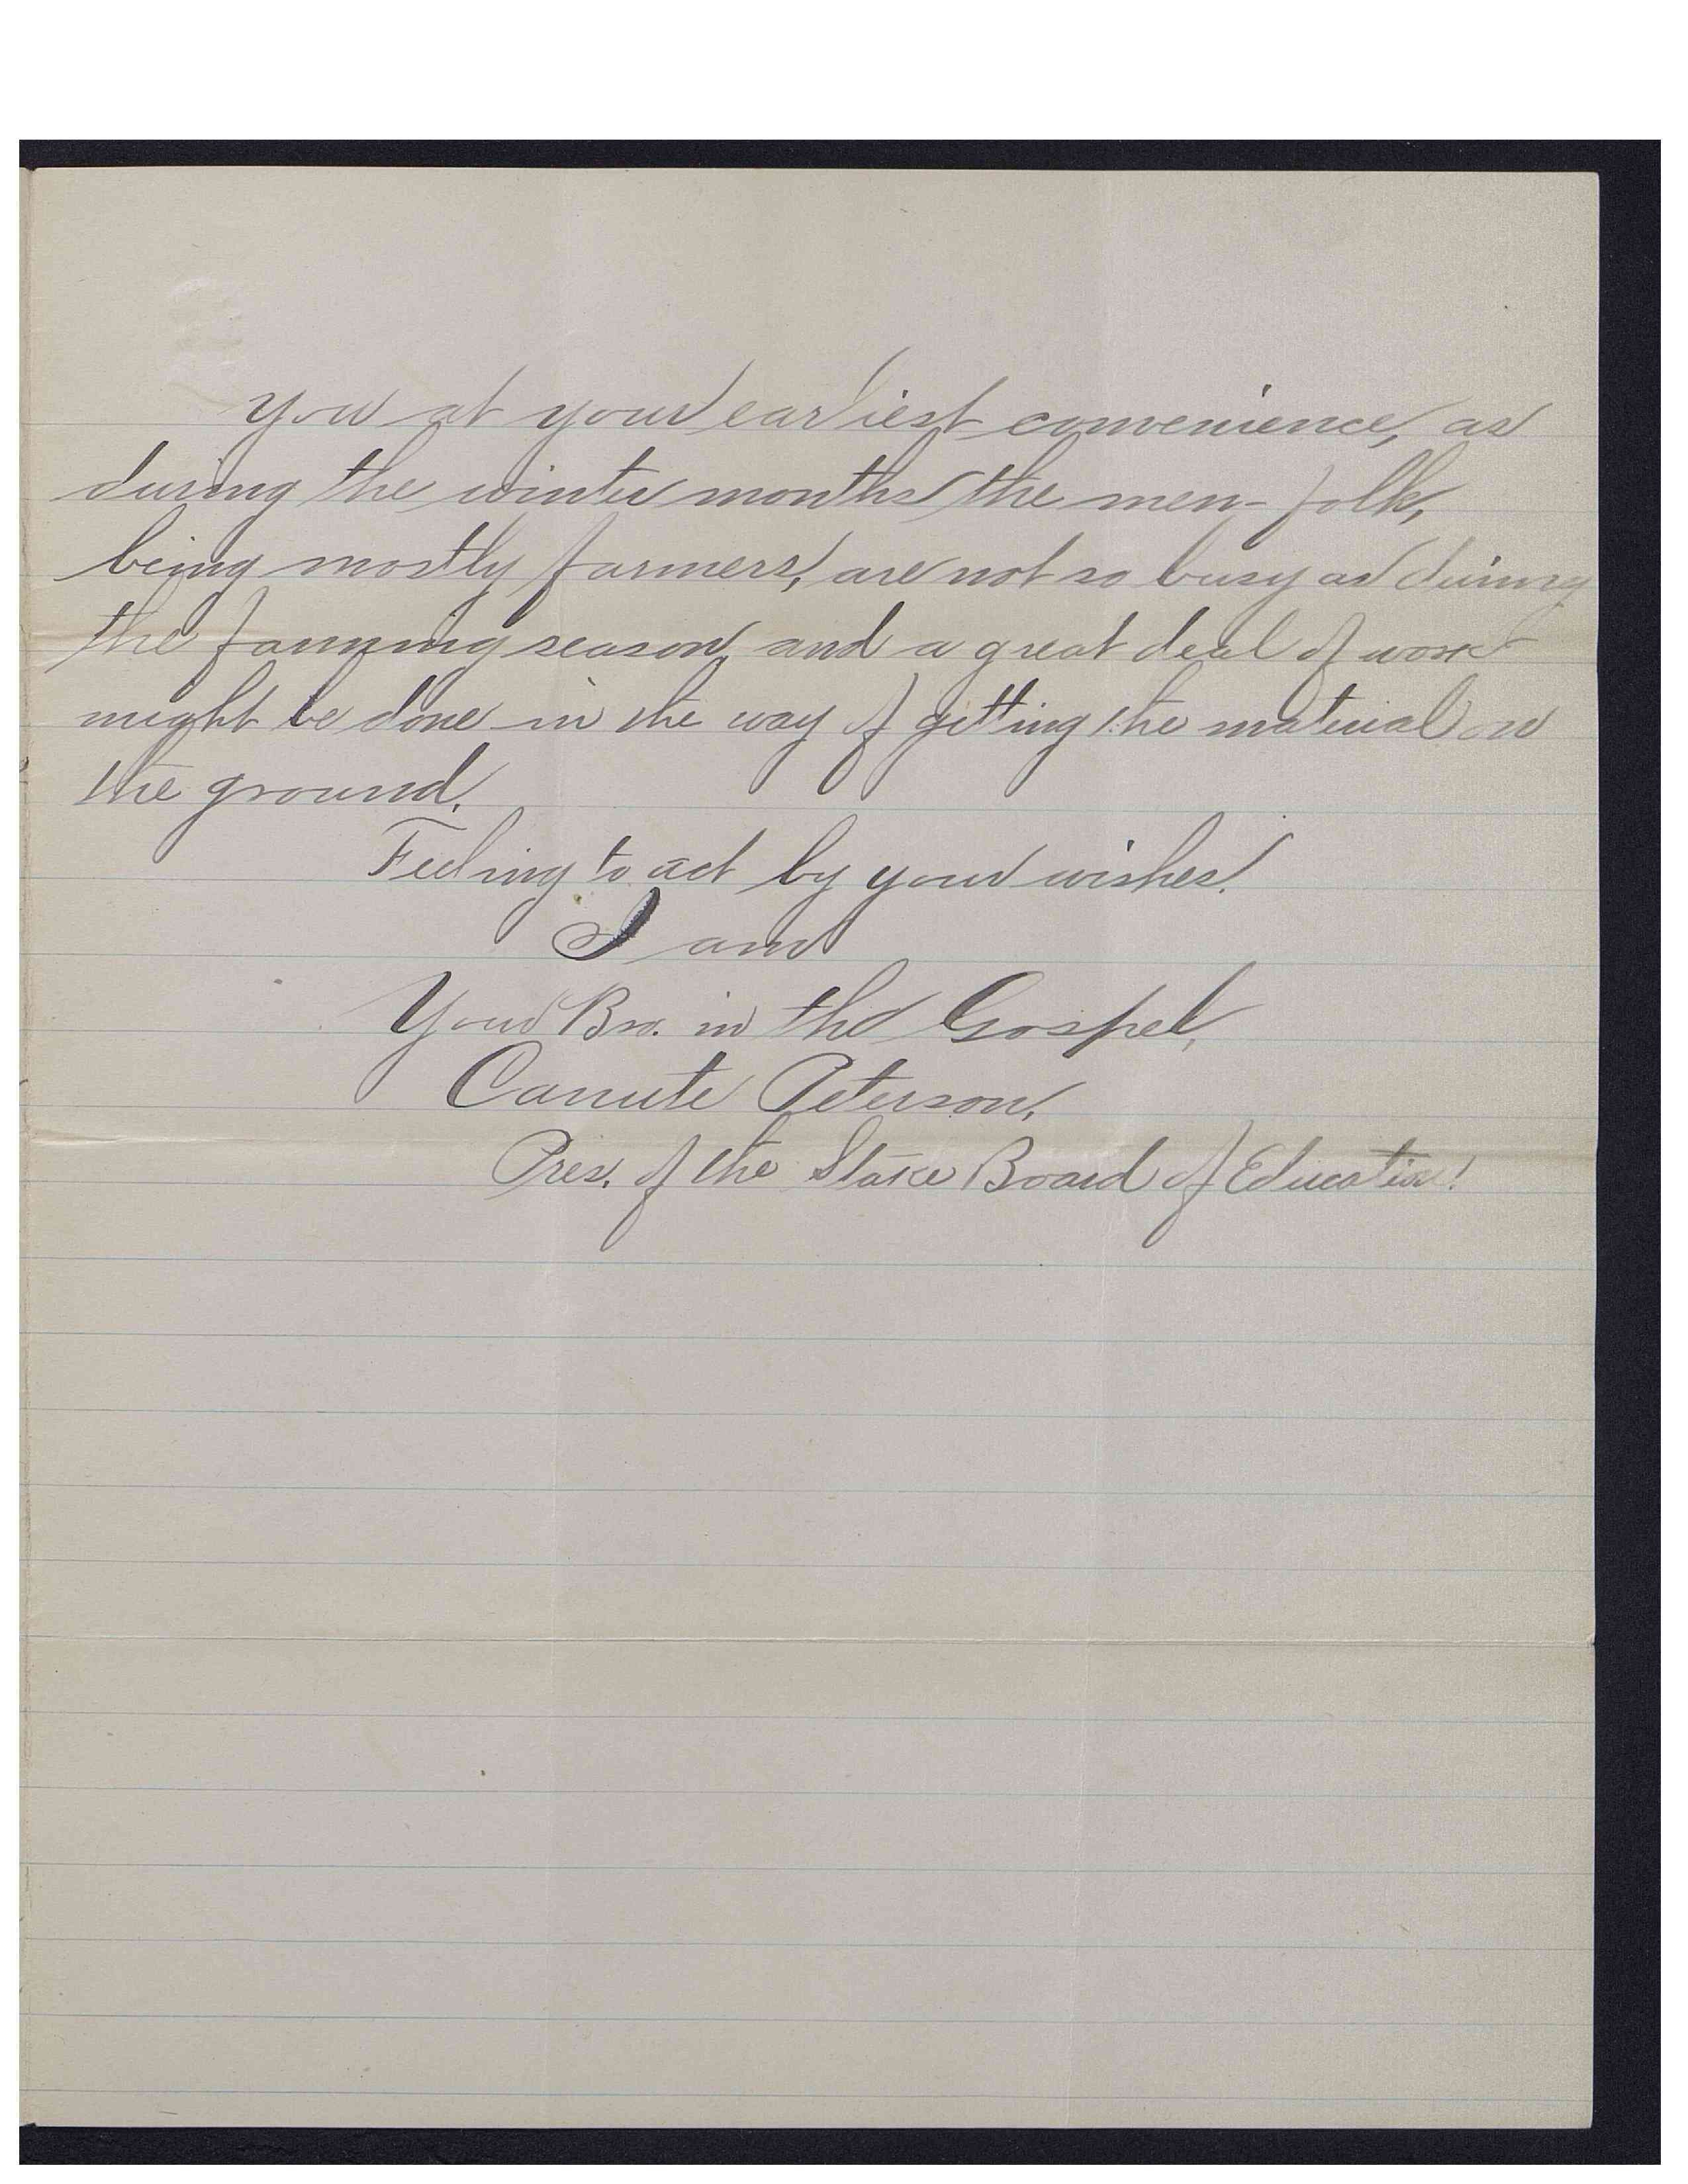 you at your earliest convenience, as
during the winter months the men-folk,
being mostly farmers, are not so busy as during
the farming season, and a great deal of work
might be done in the way of getting the material on
the ground.
Feeling to act by your wishes.
I am
Your Bro. in the Gospel,
Canute Peterson,
Pres. of the Stake Board of Education.